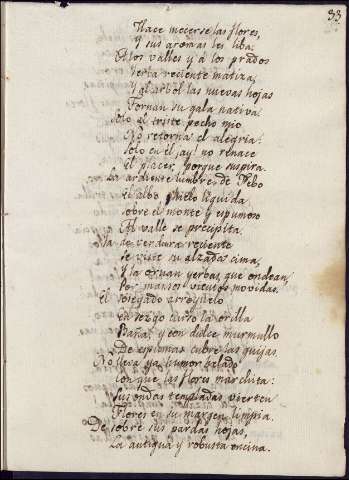 33
Hace mecerse las flores,
Y sus aromas les liba:
A los valles y á los prados
Yerba reciente matiza,
Y al arbol las nuevas hojas
Tornan su gala nativa.
Solo al triste pecho mio
No retorna el alegria:
Solo en él ¡ay! no renace
El placer, porque suspira.
La ardiente lumbre de Febo
El albo hielo liquida,
Sobre el monte y espumoso
Al valle se precipita.
Ya de verdura reciente
Se viste su alzada cima,
Y la ornan yerbas, que ondean,
Por mansos vientos movidas.
El sosegado arroyuelo
En sesgo curso la orilla
Baña, y con dulce murmullo
De espumas cubre las guijas.
No lleva ya humor helado
Con que las flores marchita:
Sus ondas templadas vierten
Flores en su margen limpia.
De sobre sus pardas hojas,
La antigua y robusta encina.